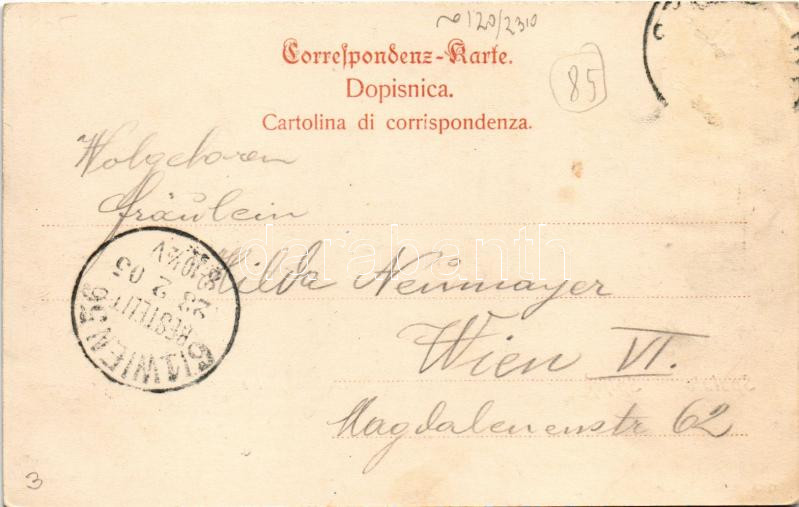 120/2310
Correspondenz-Karte.
Dopisnica.
Cartolina di corrispondenza.
85
Wolgeboren
Fräulein
Hilda Neumayer
Wien VI.
Magdalenenstr 62
6/1 WIEN
BESTELLT
23 2 05
3
darabanth